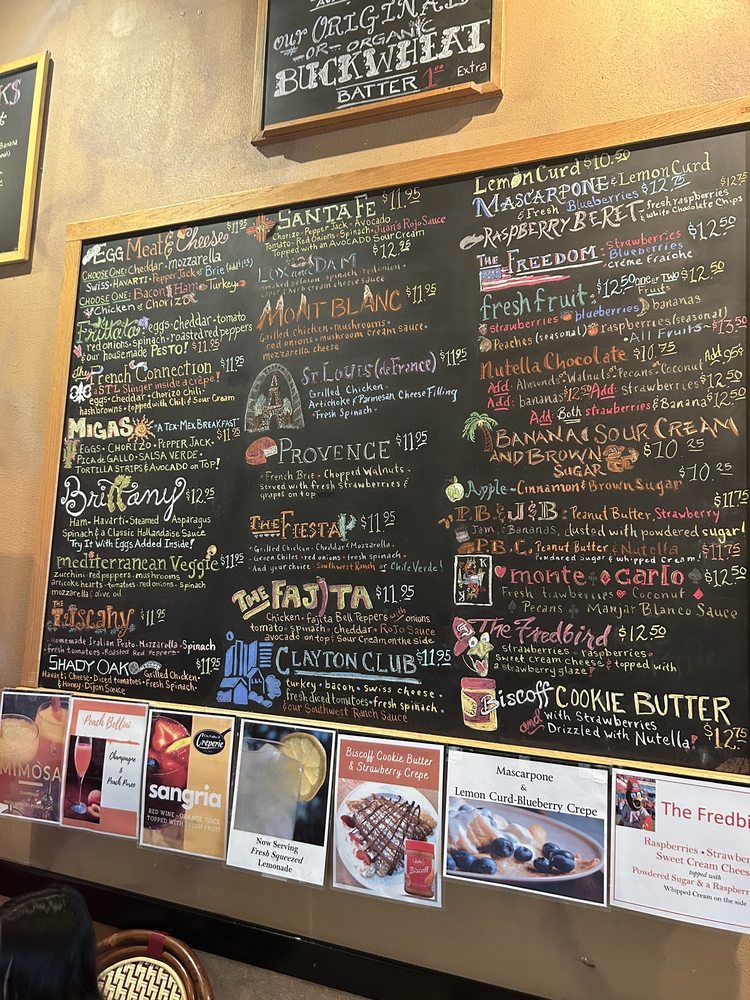 our ORIGINAL
-OR- ORGANIC
BUCKWHEAT
BATTER 1.00 Extra
KS
EGG Meat & Cheese $11.95
CHOOSE ONE: Cheddar · mozzarella
Swiss · HAVARTI · Pepper Jack · Brie
CHOOSE ONE: Bacon · Ham · Turkey
Chicken · Chorizo
Frittata eggs · cheddar · tomato
red onions · spinach · roasted red peppers
& our housemade PESTO! $11.95
the French Connection $11.95
a STL Slinger inside a crepe!
eggs · cheddar · Chorizo chili
hashbrowns · topped with Chili & Sour Cream
MIGAS "A TEX-MEX BREAKFAST" $11.95
EGGS · CHORIZO · PEPPER JACK
PICA de GALLO · SALSA VERDE
TORTILLA STRIPS & AVOCADO on TOP!
Brittany $12.95
Ham · Havarti · Steamed Asparagus
Spinach & a Classic Hollandaise Sauce
Try It With Eggs Added Inside!
mediterranean Veggie $11.95
zucchini · red peppers · mushrooms
artichoke hearts · tomatoes · red onions · spinach
mozzarella & olive oil
THE TUSCANY $11.95
Homemade Italian Pesto · Mozzarella · Spinach
fresh tomatoes · Roasted Red Peppers
SHADY OAK Grilled Chicken $11.95
Havarti Cheese · Diced tomatoes · Fresh Spinach
& Honey · Dijon Sauce
SANTA FE $11.95
Chorizo · Pepper Jack · Avocado
Tomato · Red Onions · Spinach · Juan's Rojo Sauce
Topped with an Avocado Sour Cream
LOX and DAM $12.95
Smoked salmon · spinach · red onion
caper · herb cream cheese sauce
MONT BLANC $11.95
Grilled chicken · mushrooms
red onions · mushroom cream sauce
mozzarella cheese
ST LOUIS (de FRANCE) $11.95
Grilled Chicken
Artichoke & Parmesan Cheese Filling
· Fresh Spinach ·
PROVENCE $11.95
· French Brie · Chopped Walnuts ·
Served with fresh strawberries &
grapes on top
THE FIESTA $11.95
· Grilled Chicken · Cheddar & Mozzarella
Green Chiles · red onions · fresh spinach ·
And your choice: Southwest Ranch or Chile Verde!
THE FAJITA $11.95
Chicken · Fajita Bell Peppers with onions
tomato · spinach · cheddar · ROJO Sauce
avocado on top! Sour Cream on the side
CLAYTON CLUB $11.95
turkey · bacon · swiss cheese
fresh diced tomatoes · fresh spinach
& our Southwest Ranch Sauce
Lemon Curd $10.50
MASCARPONE & Lemon Curd
& Fresh Blueberries $12.75
RASPBERRY BERET: fresh raspberries $12.75
white Chocolate Chips
THE FREEDOM: Strawberries $12.50
Blueberries
crème Fraîche
fresh fruit: $12.50 one or TWO Fruits $12.50
strawberries blueberries bananas
Peaches (seasonal) raspberries (seasonal)
· All Fruits ~ $13.50
Nutella Chocolate $10.75
Add: Almonds · Walnuts · Pecans · Coconut Add .95¢
Add: bananas $12.50 Add: strawberries $12.50
Add: Both strawberries & Banana $12.50
BANANA & SOUR CREAM
AND BROWN
SUGAR $10.25
Apple - Cinnamon & Brown Sugar $10.25
P.B. & J & B: Peanut Butter, Strawberry $11.75
Jam, & Bananas, dusted with powdered sugar!
P.B.C. Peanut Butter & Nutella $11.75
Powdered Sugar & whipped Cream!
monte carlo $12.50
Fresh Strawberries Coconut
Pecans Manjar Blanco Sauce
The Fredbird $12.50
strawberries · raspberries
sweet cream cheese & topped with
strawberry glaze!
Biscoff COOKIE BUTTER
and with Strawberries
Drizzled with Nutella! $12.75
MIMOSA
Peach Bellini
Champagne
&
Peach Puree
Creperie
sangria
RED WINE · ORANGE JUICE
TOPPED WITH FRESH FRUIT
Now Serving
Fresh Squeezed
Lemonade
Biscoff Cookie Butter
& Strawberry Crepe
Biscoff
Mascarpone
&
Lemon Curd-Blueberry Crepe
The Fredbi
Raspberries · Strawber
Sweet Cream Chees
topped with
Powdered Sugar & a Raspber
Whipped Cream on the side